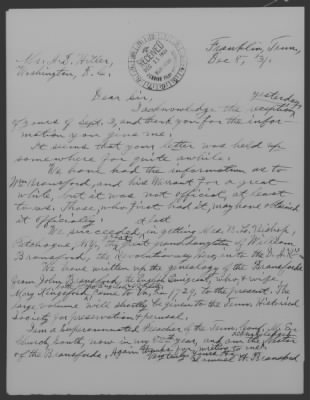 Franklin, Tenn,
Dec 8, '31.
Mr. A. D. Hiller,
Washington, D. C.
RECEIVED
Dear Sir,
yesterday,
I acknowledge the reception
of yours of Sept. 3, and thank you for the infor-
mation you give me.
It seems that your letter was held up
somewhere for quite awhile.
We have had the information as to
Wm Bransford, and his Warrant for a great
while, but it was not official, at least
to us. Those, who first had it, may have obtained
it officially.
at last
We succeeded, in getting Mrs. B. H. Bishop,
Patchogue, N.Y., the great granddaughter of William
Bransford, the Revolutionary hero into the D.A.R.
We have written up the genealogy of the Bransfords
from John Bransford, the English Emigrant, who with wife
Mary Kingsford came to Va., to the present. The
large volume will shortly be given to the Tenn. Historical
Society for preservation and perusal.
I am a Superannuated Preacher of the Tenn. Conf. M. E.
Church, South, now in my year, and am the Writer
of the Bransfords. Again thanks for writing to me.
Very truly Yours
H. Bransford